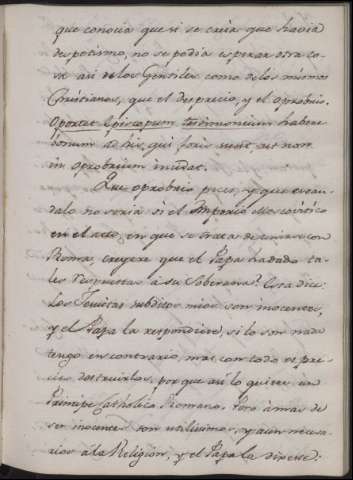 que conocia que si se caìa que havia
despotismo, no se podia esperar otra co-
sa asi de los Gentiles como de los mismos
Cristianos, que el desprecio, y el oprobrio.
Oportet Episcopum testimonium habere
bonum ab his, qui foris sunt, ut non
in oprobrium incidat.
Que oprobrio pues, y que escan-
dalo no seria si el Imperio Moscovitico
en el acto, en que se trata de unirse con
Roma, creyere que el Papa ha dado ta-
les respuestas à su Soberana? Esta dice:
los Jesuitas subditos mios son inocentes,
y el Papa la respondiere, si lo son nada
tengo en contrario, mas con todo es pre-
ciso destruirlos, porque asi lo quiere un
Principe Catholico Romano. Pero à mas de
ser inocentes son utilisimos, y aun necesa-
rios à la Religion, y el Papa la dixese: